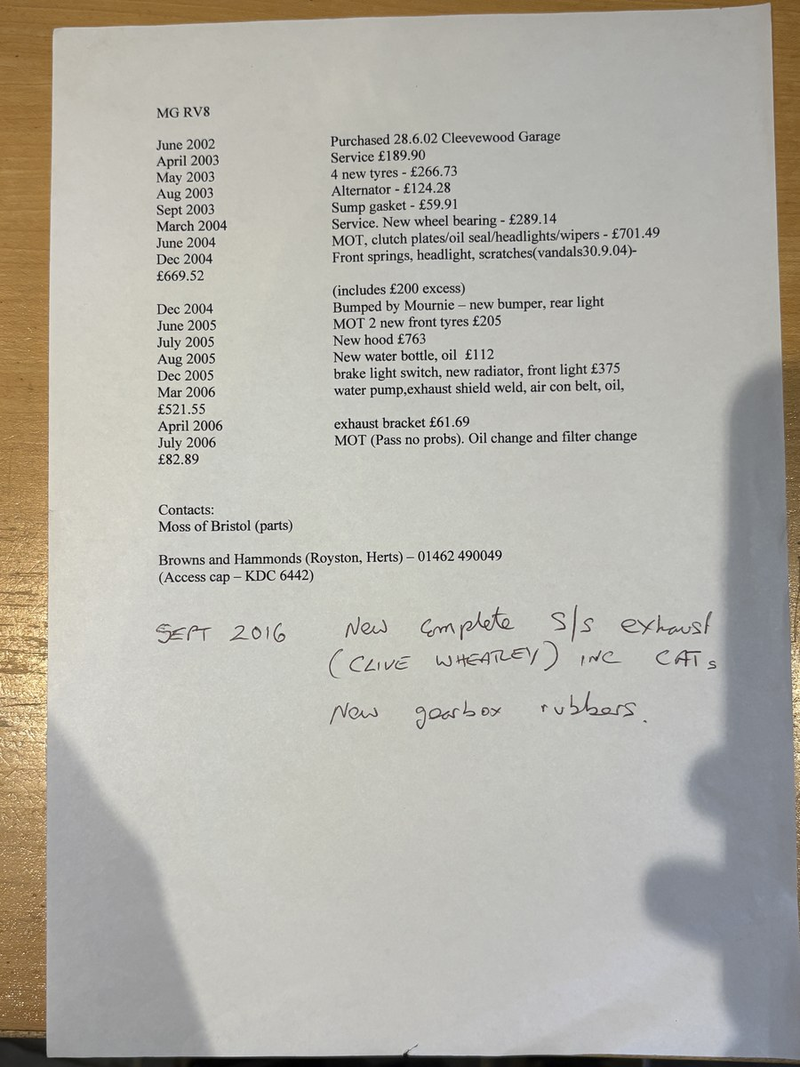 MG RV8
June 2002 Purchased 28.6.02 Cleevewood Garage
April 2003 Service £189.90
May 2003 4 new tyres - £266.73
Aug 2003 Alternator - £124.28
Sept 2003 Sump gasket - £59.91
March 2004 Service. New wheel bearing - £289.14
June 2004 MOT, clutch plates/oil seal/headlights/wipers - £701.49
Dec 2004 Front springs, headlight, scratches(vandals30.9.04)-
£669.52
(includes £200 excess)
Dec 2004 Bumped by Mournie – new bumper, rear light
June 2005 MOT 2 new front tyres £205
July 2005 New hood £763
Aug 2005 New water bottle, oil £112
Dec 2005 brake light switch, new radiator, front light £375
Mar 2006 water pump,exhaust shield weld, air con belt, oil,
£521.55
April 2006 exhaust bracket £61.69
July 2006 MOT (Pass no probs). Oil change and filter change
£82.89
Contacts:
Moss of Bristol (parts)
Browns and Hammonds (Royston, Herts) – 01462 490049
(Access cap – KDC 6442)
SEPT 2016 New complete S/S exhaust
(CLIVE WHEATLEY) INC CATs
New gearbox rubbers.